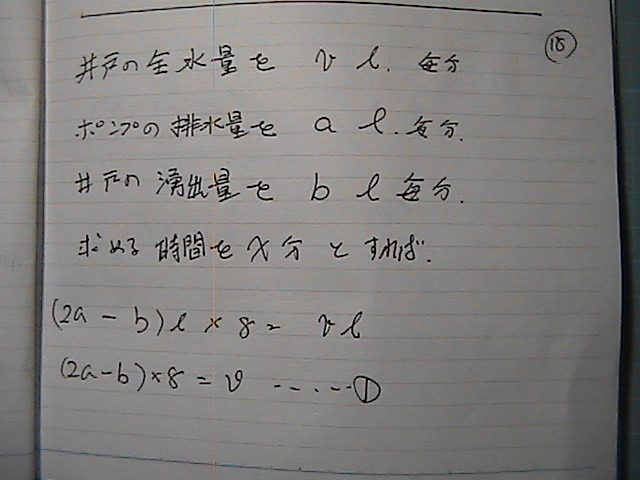 ⑱
井戸の全水量を v l. 毎分
ポンプの排水量を a l. 毎分.
井戸の湧出量を b l 毎分.
求める時間を x分 とすれば.
(2a - b) l × 8 = v l
(2a - b) × 8 = v ‥‥‥①